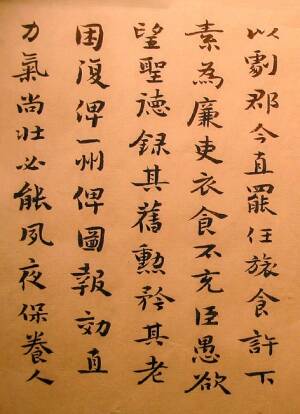 以劇郡今直罷任旅食許下
素為廉吏衣食不充臣愚欲
望聖德錄其舊勲矜其老
困復俾一州俾圖報効直
力氣尚壯必能夙夜保養人